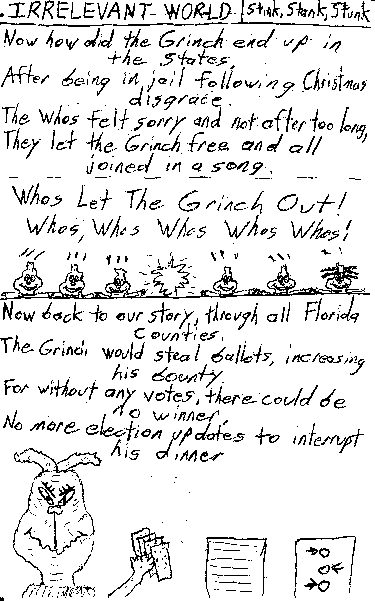 IRRELEVANT WORLD | Stink, Stank, Stunk
Now how did the Grinch end up in
the States,
After being in jail following Christmas
disgrace.
The Whos felt sorry and not after too long,
They let the Grinch free and all
joined in a song.
Whos Let The Grinch Out!
Whos, Whos Whos Whos Whos!
Now back to our story, through all Florida
counties,
The Grinch would steal ballots, increasing
his bounty
For without any votes, there could be
no winner,
No more election updates to interrupt
his dinner